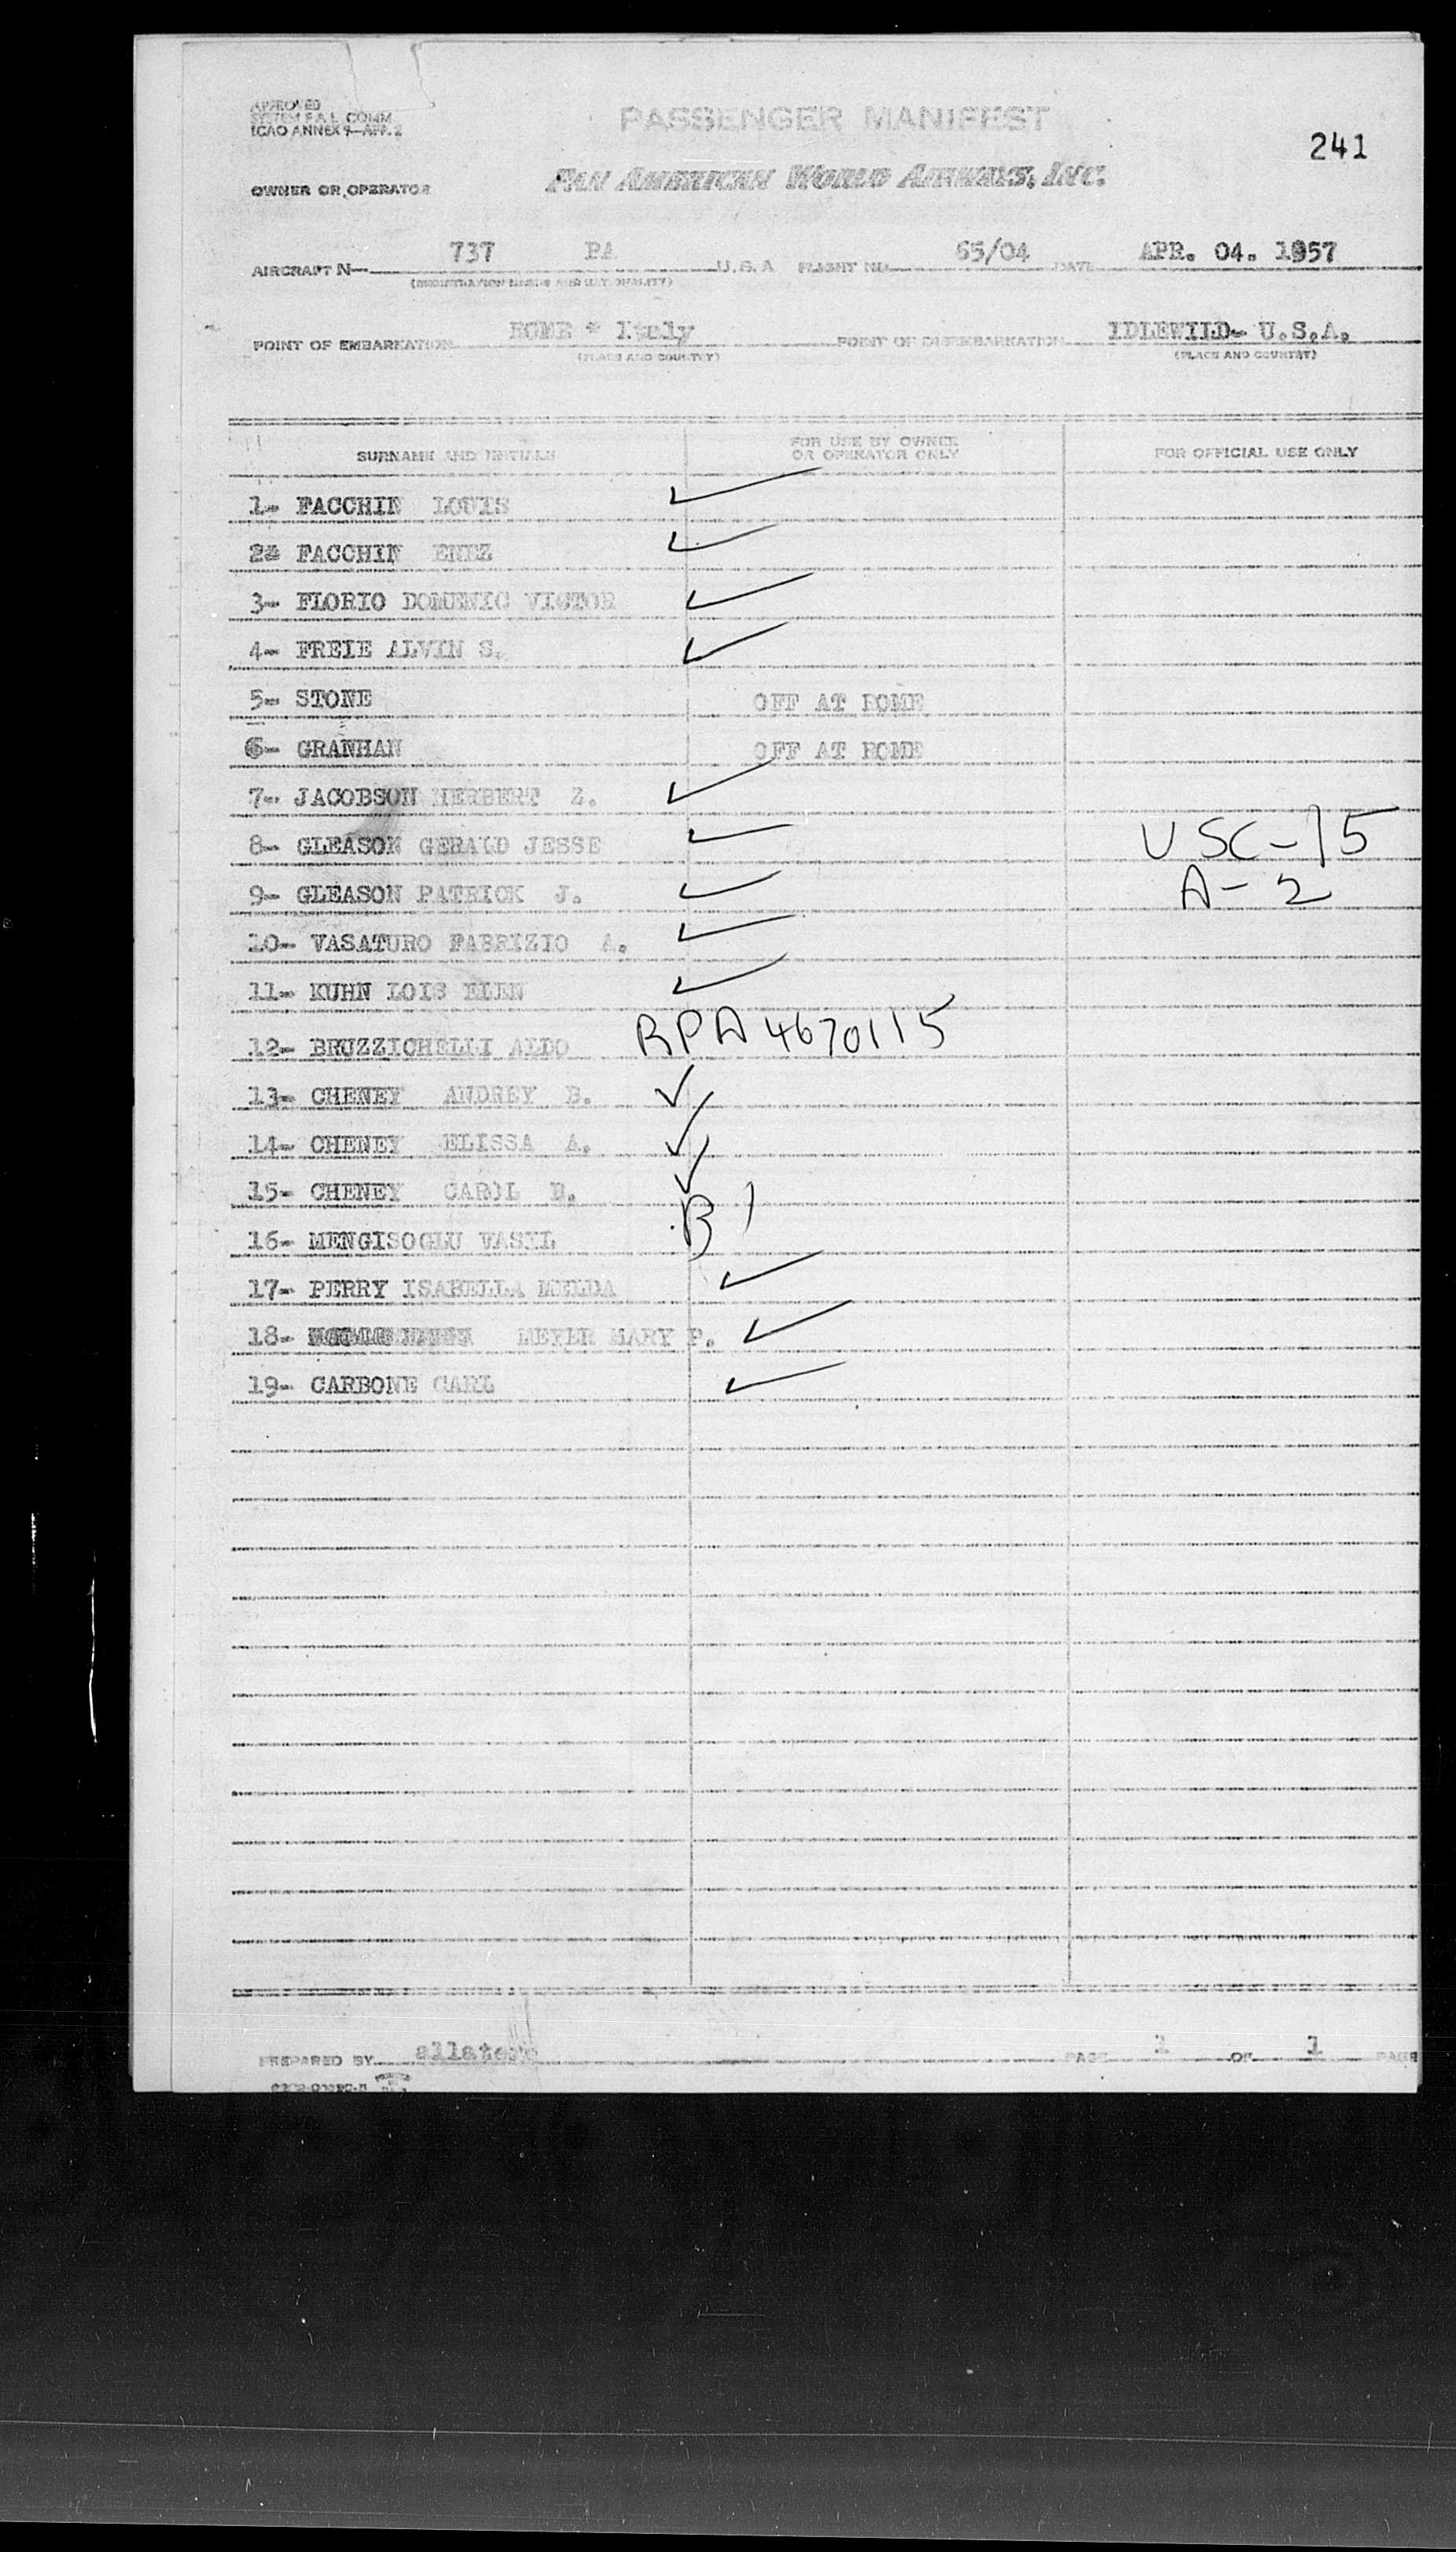 APPROVED
SYSTEM F.A.L. COMM.
ICAO ANNEX 9-APP. 2
PASSENGER MANIFEST
241
OWNER OR OPERATOR PAN AMERICAN WORLD AIRWAYS, INC.
AIRCRAFT N— 737 PA U.S.A FLIGHT NO. 65/04 DATE APR. 04. 1957
(REGISTRATION MARKS AND NATIONALITY)
POINT OF EMBARKATION ROME * Italy POINT OF DISEMBARKATION IDLEWILD- U.S.A.
(PLACE AND COUNTRY) (PLACE AND COUNTRY)
SURNAME AND INITIALS FOR USE BY OWNER OR OPERATOR ONLY FOR OFFICIAL USE ONLY
1- FACCHIN LOUIS ✓
2- FACCHIN ENEZ ✓
3- FIORIO DOMENIC VICTOR ✓
4- FREIE ALVIN S. ✓
5- STONE OFF AT ROME
6- GRANHAN OFF AT ROME
7- JACOBSON HERBERT Z. ✓
8- GLEASON GERALD JESSE ✓ USC-15
9- GLEASON PATRICK J. ✓ A-2
10- VASATURO FABRIZIO A. ✓
11- KUHN LOIS ELEN ✓
12- BRUZZICHELLI ALDO RPA 4670115
13- CHENEY ANDREY B. ✓
14- CHENEY ELISSA A. ✓
15- CHENEY CAROL E. ✓
16- MENGISOGLU VASIL B1
17- PERRY ISABELLA MELDA ✓
18- MEYER MARY P. ✓
19- CARBONE CARL ✓
PREPARED BY PAGE 1 OF 1 PAGE